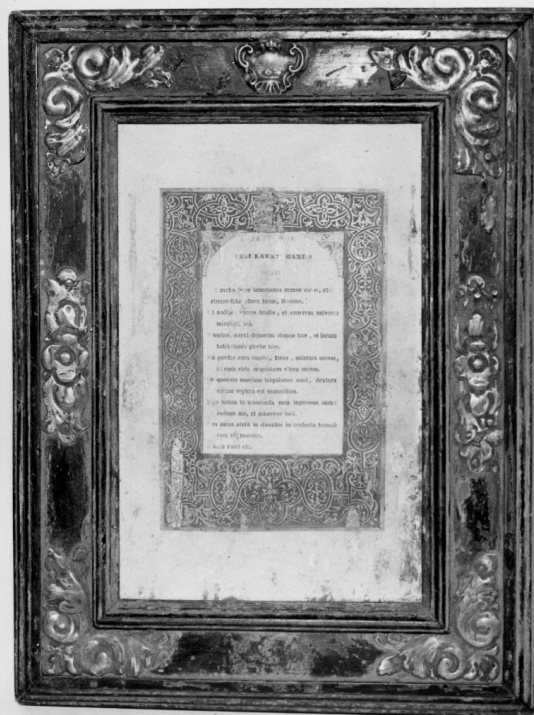 LAVAT MANUS
inter innocentes manus
circumdabo altare tuum, Domine.
audiam vocem laudis, et enarrem universa
mirabilia tua.
dilexi decorem domus tuæ, et locum
habitationis gloriæ tuæ.
perdas cum impiis, Deus, animam meam,
et cum viris sanguinum vitam meam:
quorum manibus iniquitates sunt, dextera
eorum repleta est muneribus.
autem in innocentia mea ingressus sum:
redime me, et miserere mei.
meus stetit in directo: in ecclesiis
cam te, Domine.
Patri etc.